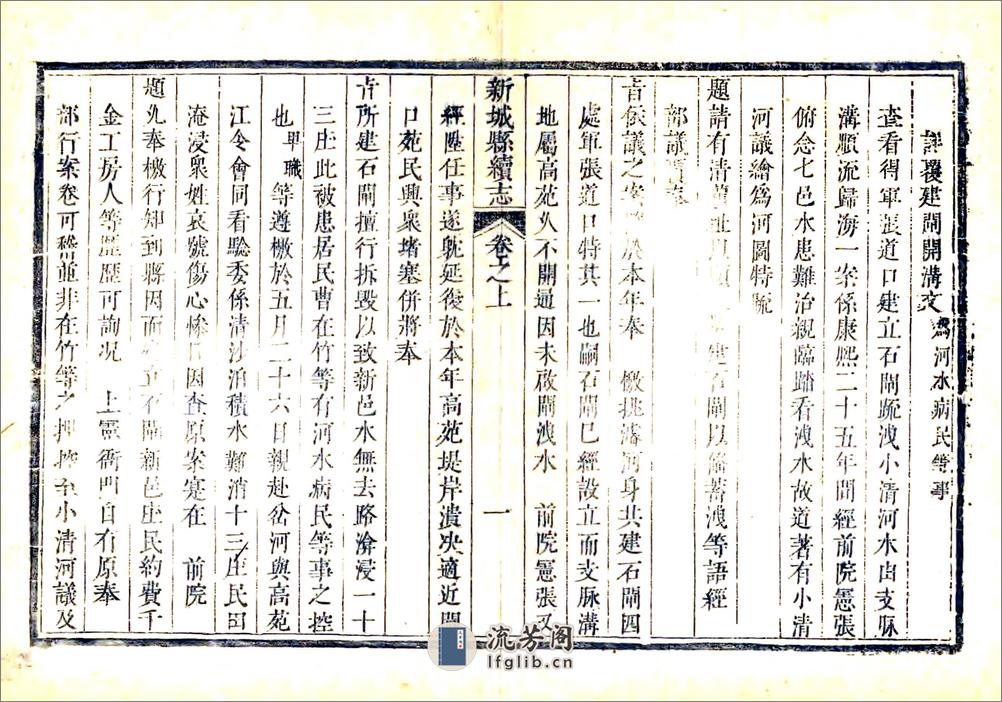 詳覆建閘開溝文 為河水病民等事
查看得軍張道口建立石閘疏洩小清河水由支脉
溝順流歸海一案係康熙二十五年間經前院憲張
俯念七邑水患難治親臨踏看洩水故道著有小清
河議繪為河圖特疏
題請有清 建石閘以 蓄洩等語經
部議
旨依議之 於本年奉 檄挑濬河身共建石閘四
處軍張道口特其一也嗣石閘已經設立而支脉溝
地屬高苑久不開通因未啟閘洩水 前院憲張又
新城縣續志 卷之上 一
經陞任事遂躭延後於本年高苑堤岸潰決適近閘
口苑民興衆堵塞併將奉
旨所建石閘擅行拆毀以致新邑水無去路渰浸一十
三庄此被患居民曹在竹等有河水病民等事之控
也卑職等遵檄於五月二十六日親赴岔河與高苑
江令會同看驗委係清沙泊積水難消十三庄民田
淹浸衆姓哀號傷心慘目因查原案寔在 前院
題允奉檄行知到縣因而 立石閘新邑庄民約費千
金工房人等歷歷可詢况 上憲衙門自有原奉
部行案卷可稽並非在竹等之 小清河議及
流芳阁
lfglib.cn